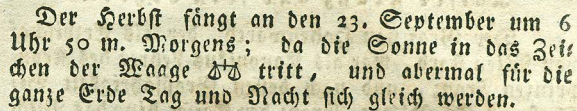 Der Herbst fängt an den 23. September um 6
Uhr 50 m. Morgens; da die Sonne in das Zei-
chen der Waage ♎ tritt, und abermal für die
ganze Erde Tag und Nacht sich gleich werden.